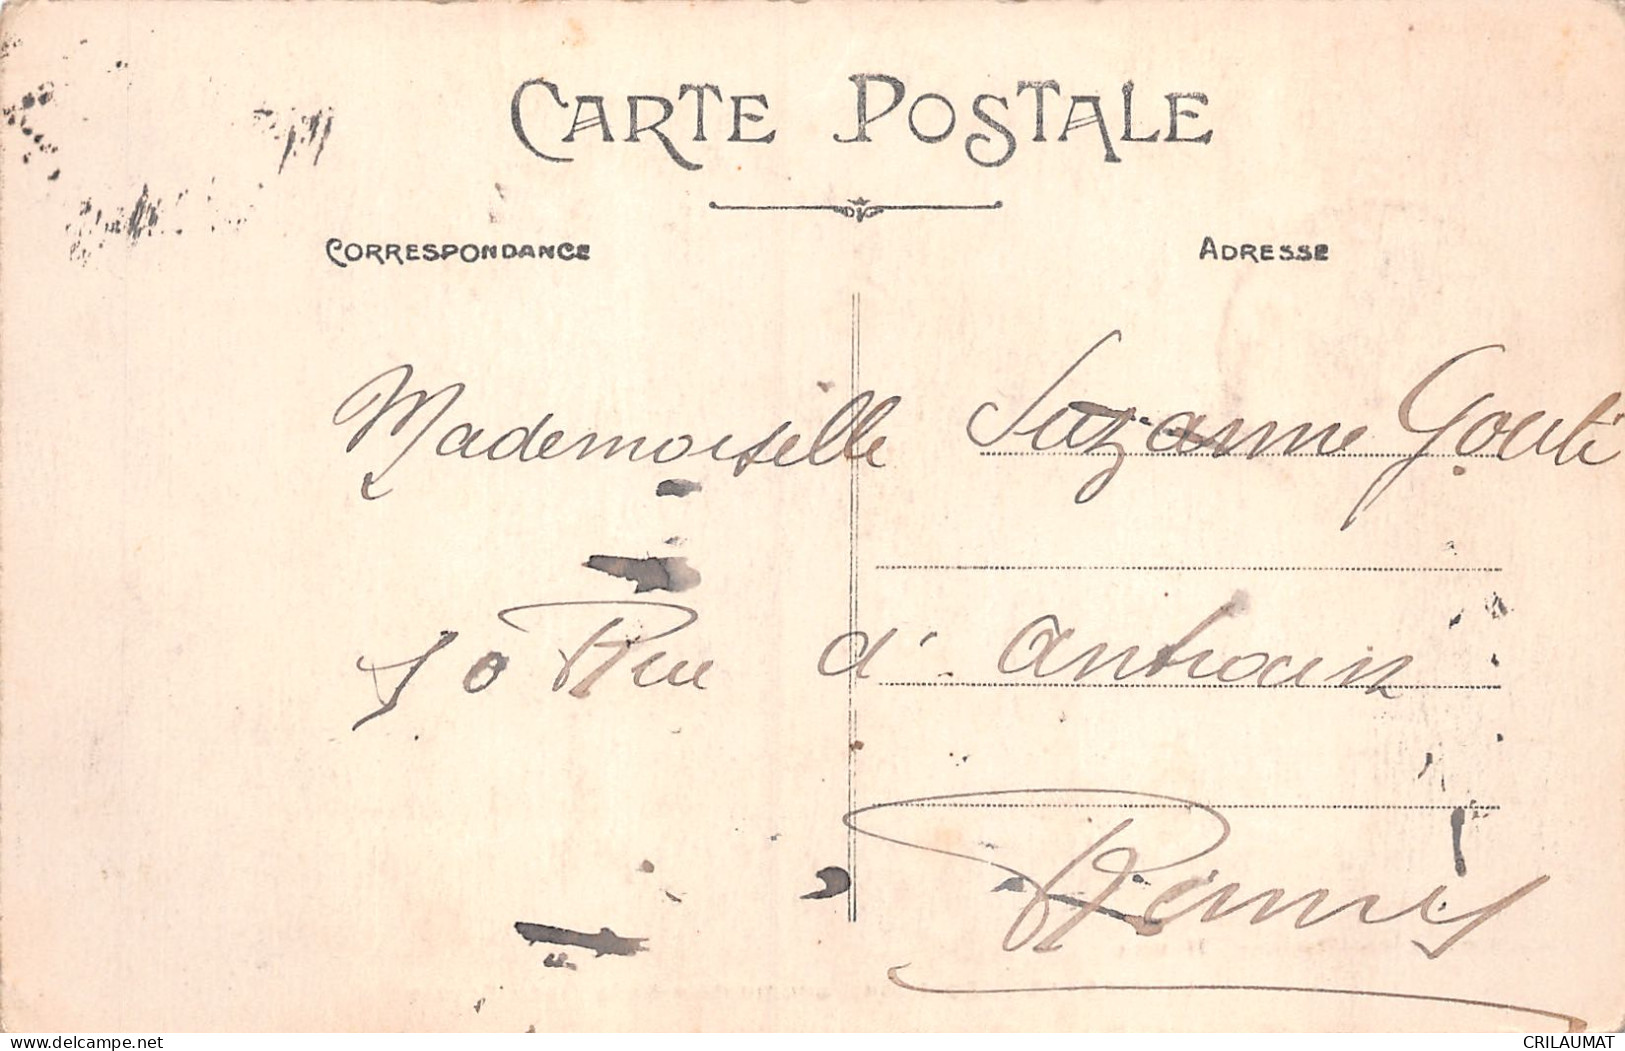 CARTE POSTALE
CORRESPONDANCE
ADRESSE
Mademoiselle Suzanne Gouti
10 Rue d'antrain
Rennes
CRILAUMAT